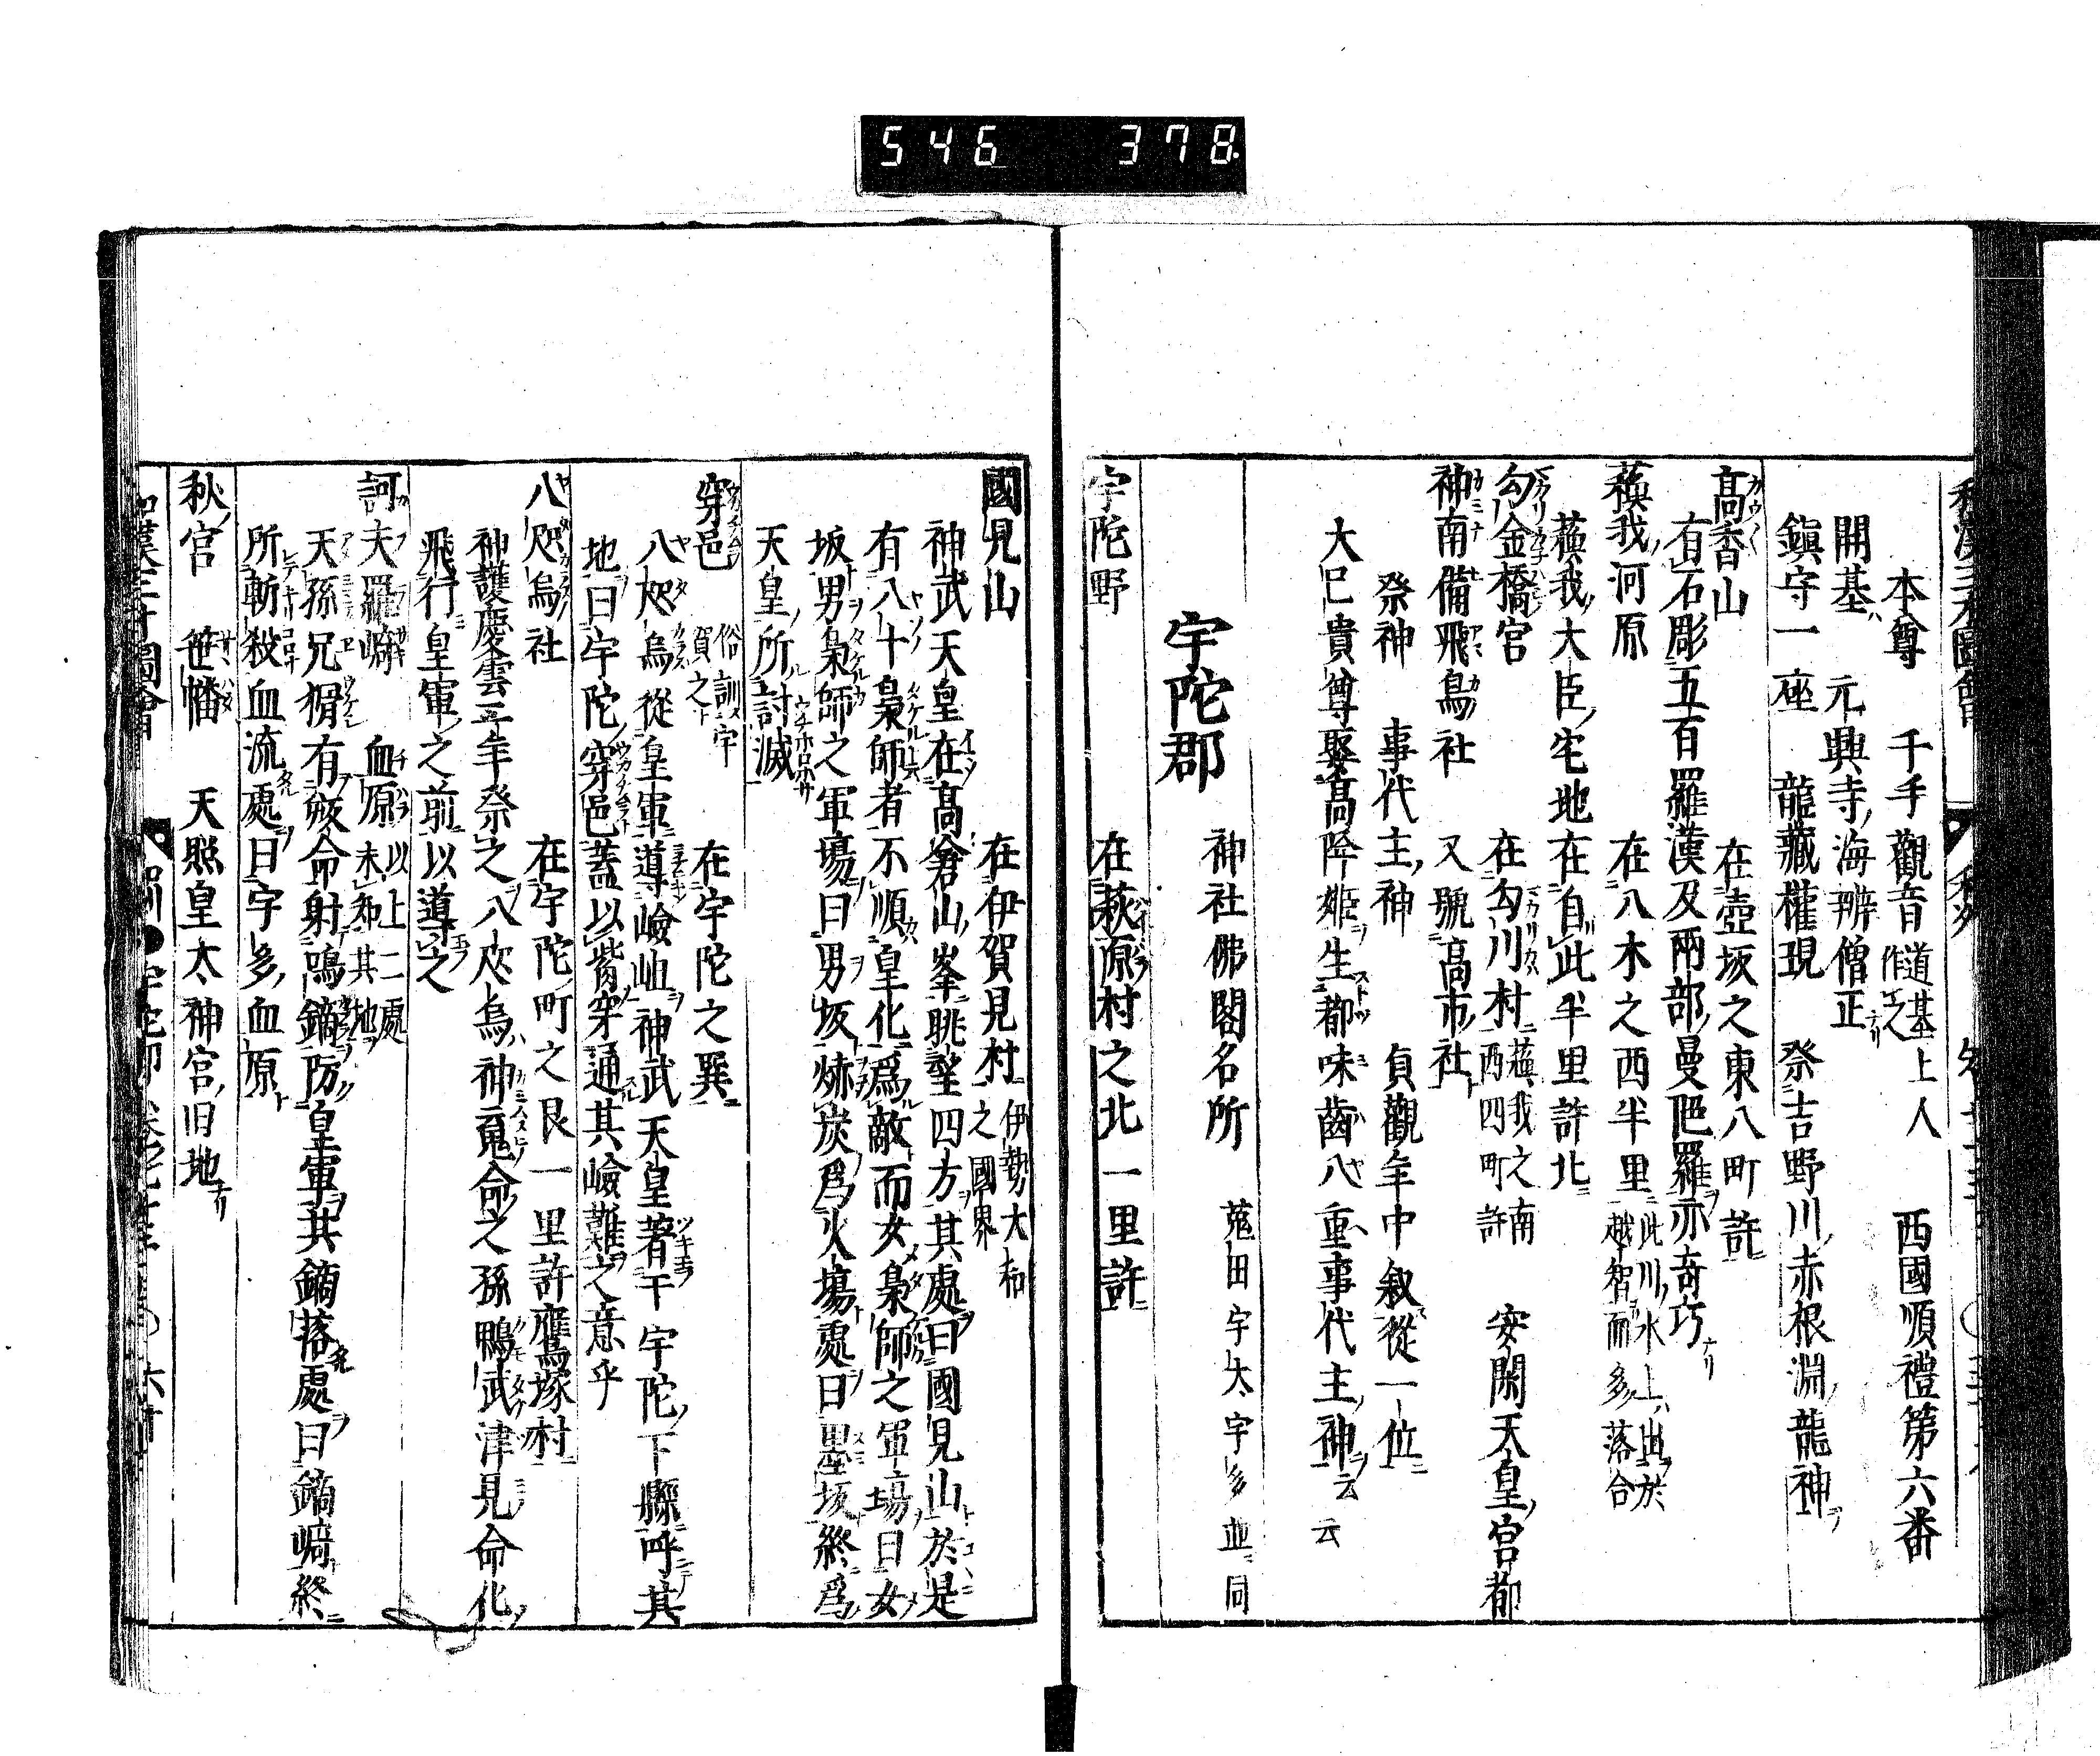 546 378
本尊 千手觀音 道基上人作之 西國順禮第六番
開基 元興寺海辨僧正
鎮守一座 龍藏權現 祭吉野川赤根淵龍神
髙香山 在壺坂之東八町許
有石彫五百羅漢及兩部曼陀羅亦奇巧
蘓我河原 在八木之西半里 此川水上出於越智而多落合
蘓我大臣宅地在自此半里許北
勾金橋宮 在勾川村 蘓我之南西四町許 安閑天皇宮都
神南備飛鳥社 又號髙市社
祭神 事代主神 貞觀年中叙從一位
大巳貴尊娶髙降姫生都味齒八重事代主神云云
宇陀郡 神社佛閣名所 菟田宇太宇多並同
宇陀野 在萩原村之北一里許
國見山 在伊賀見村 伊勢大和之國界
神武天皇在髙倉山峯眺望四方其處曰國見山於是
有八十梟師者不順皇化爲敵而女梟師之軍場曰女
坂男梟師之軍場曰男坂𤇆炭爲火塲處曰墨坂終爲
天皇所討滅
穿邑 俗訓宇賀之 在宇陀之巽
八咫烏從皇軍導嶮岨神武天皇著干宇陀下縣呼其
地曰宇陀穿邑蓋以觜穿通其嶮難之意乎
八咫烏社 在宇陀町之艮一里許鷹塚村
神護慶雲三年祭之八咫烏神䰠命之孫鴨武津見命化
飛行皇軍之前以導之
訶夫羅﨑 血原 以上二處未知其地
天孫兄猾有叛命射鳴鏑防皇軍其鏑落處曰鏑﨑終
所斬殺血流處曰宇多血原
秋宮 笹幡 天照皇太神宮旧地